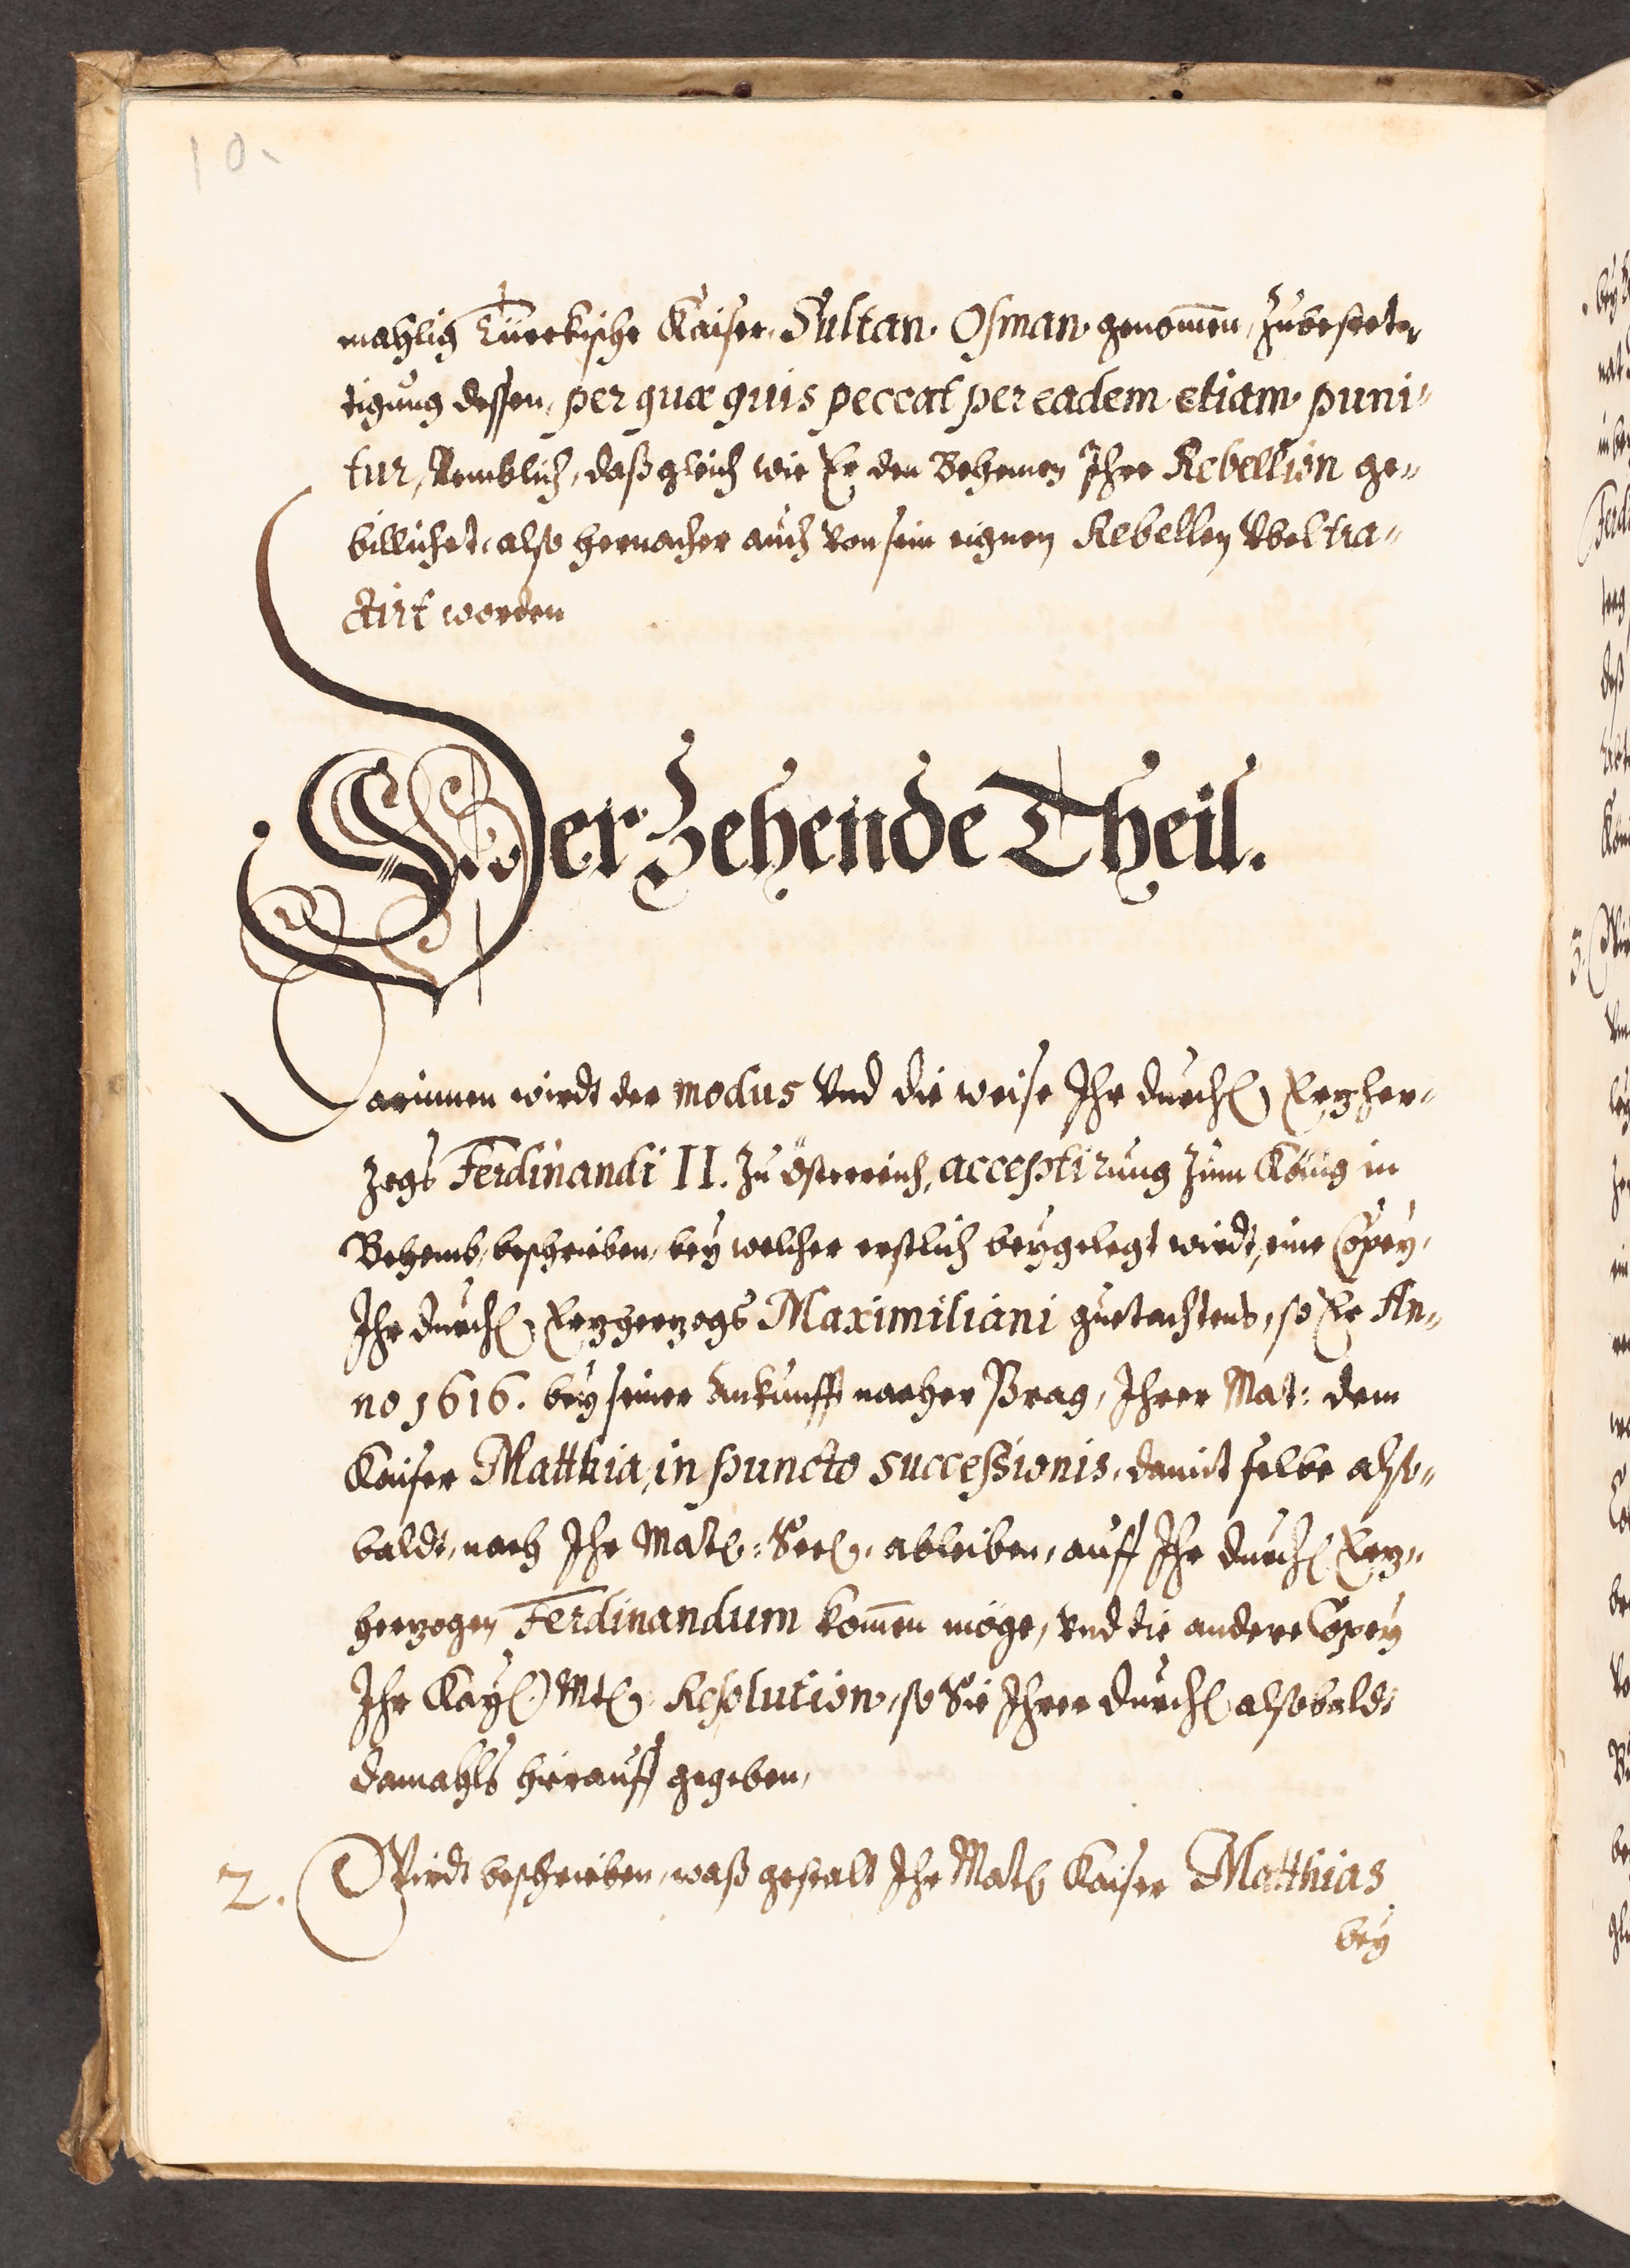 10.
mahlig Türckische Kaiser, Sultan Osman genom̄en, Zubestett„
tigung dessen, per quæ quis peccat per eadem etiam puni„
tur, Nemblich, daß gleich wie Er den Behemen Ihre Rebellion ge„
billichet, also hernacher auch von sein eignen Rebellen Vbel tra„
ctirt worden
Der Zehende Theil.
Darinnen wirdt der modus Vnd die weise Ihr durchl: Erzher„
zogs Ferdinandi II. Zu Österreich, acceptirung Zum König in
Behemb, beschrieben, bey welcher erstlich beygelegt wirdt, eine Copey,
Ihr durchl: Erzherzogs Maximiliani guetachtens, so Er An„
no 1616. bey seiner Ankunfft nacher Prag, Ihrer Mat: dem
Kaiser Matthia, in puncto successionis, damit selbe also„
baldt, nach Ihr Matt: Seel: ableiben, auff Ihr durchl: Erz„
herzogen Ferdinandum kom̄en möge, Vnd die andere Copey
Ihr Kayl: Mtt: Resolution, so Sie Ihrer durchl: alsobaldt
damahls hierauff gegeben,
2. Wirdt beschrieben, waß gestalt Ihr Matt: Kaiser Matthias
bey